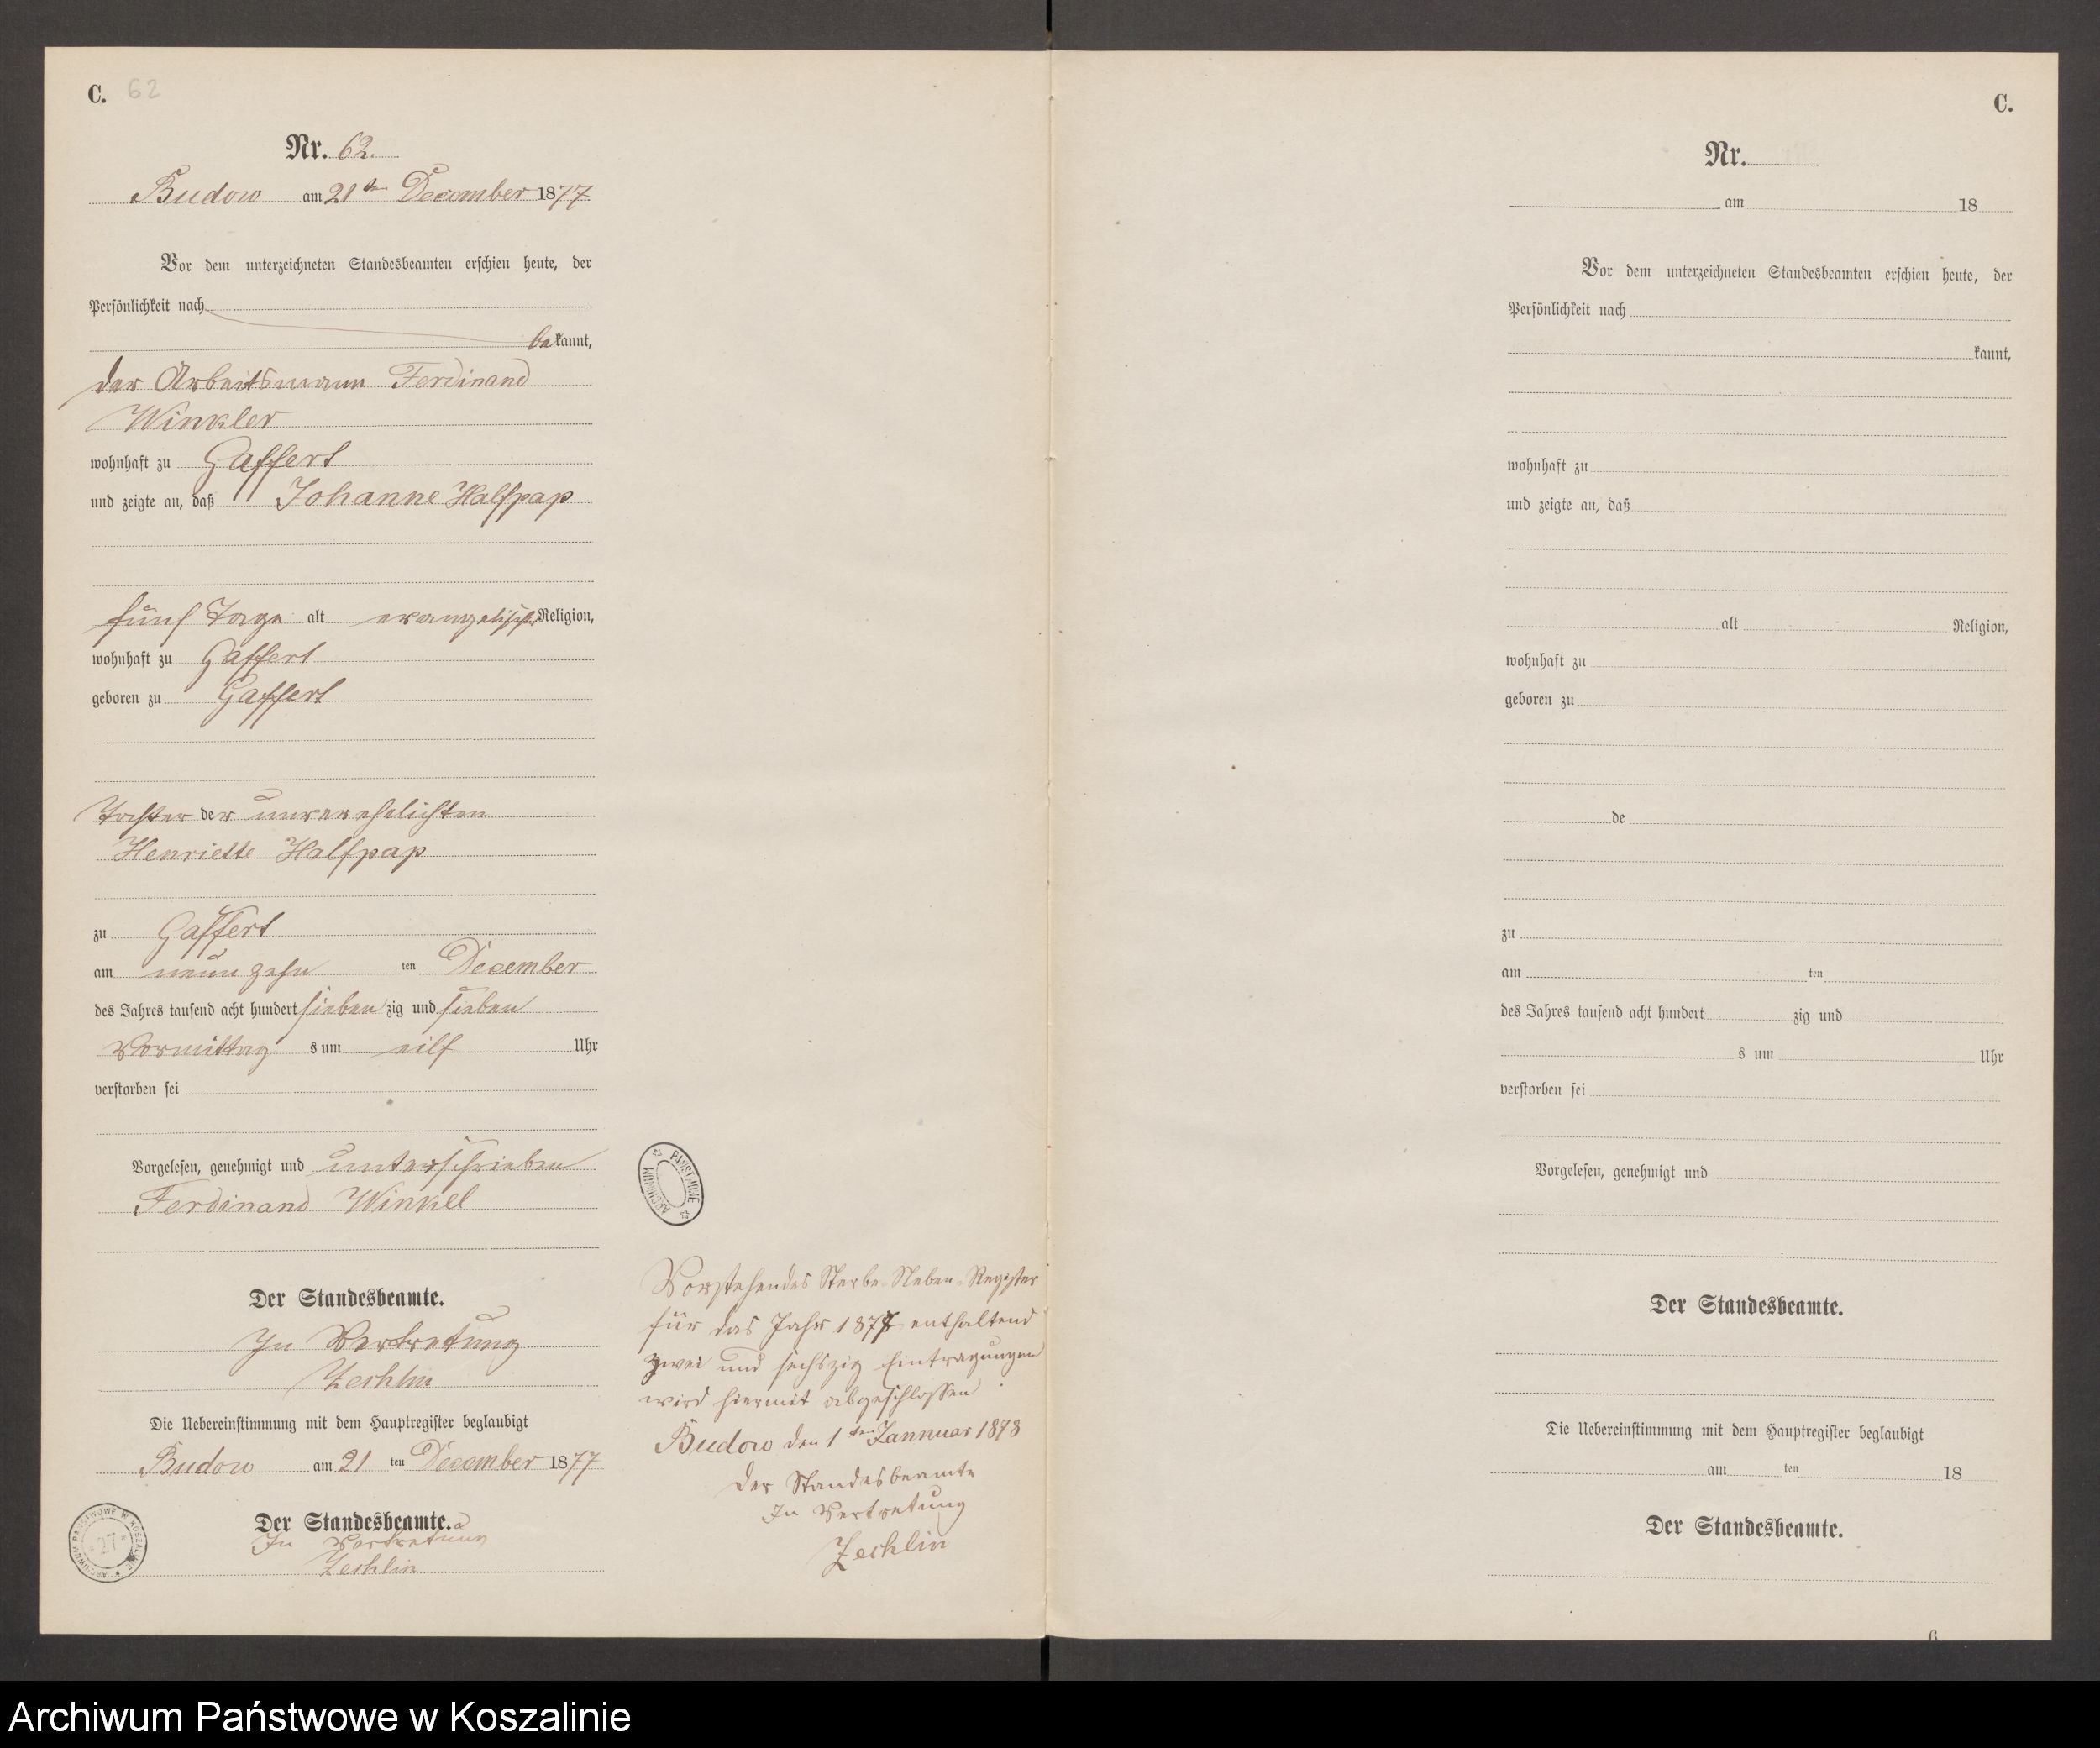 C. 62
Nr. 62.
Budow am 21ten December 1877
Vor dem unterzeichneten Standesbeamten erschien heute, der
Persönlichkeit nach
bekannt,
der Arbeitsmann Ferdinand
Winkler
wohnhaft zu Gaffert
und zeigte an, daß Johanne Halfpap
fünf Tage alt evangelischer Religion,
wohnhaft zu Gaffert
geboren zu Gaffert
Tochter der unverehelichten
Henriette Halfpap
zu Gaffert
am neunzehn ten December
des Jahres tausend acht hundert siebenzig und sieben
Vormittags um eilf Uhr
verstorben sei
Vorgelesen, genehmigt und unterschrieben
Ferdinand Winkel
Der Standesbeamte.
In Vertretung
Zechlin
Die Uebereinstimmung mit dem Hauptregister beglaubigt
Budow am 21 ten December 1877
Der Standesbeamte.
In Vertretung
Zechlin
ARCHIWUM PAŃSTWOWE W KOSZALINIE
27
ARCHIWUM PAŃSTWOWE
Vorstehendes Sterbe-Neben-Register
für das Jahr 1877 enthaltend
zwei und sechszig Eintragungen
wird hiermit abgeschlossen
Budow den 1ten Jannuar 1878
Der Standesbeamte
In Vertretung
Zechlin
C.
Nr.
am 18
Vor dem unterzeichneten Standesbeamten erschien heute, der
Persönlichkeit nach
kannt,
wohnhaft zu
und zeigte an, daß
alt Religion,
wohnhaft zu
geboren zu
de
zu
am ten
des Jahres tausend acht hundert zig und
s um Uhr
verstorben sei
Vorgelesen, genehmigt und
Der Standesbeamte.
Die Uebereinstimmung mit dem Hauptregister beglaubigt
am ten 18
Der Standesbeamte.
6
Archiwum Państwowe w Koszalinie